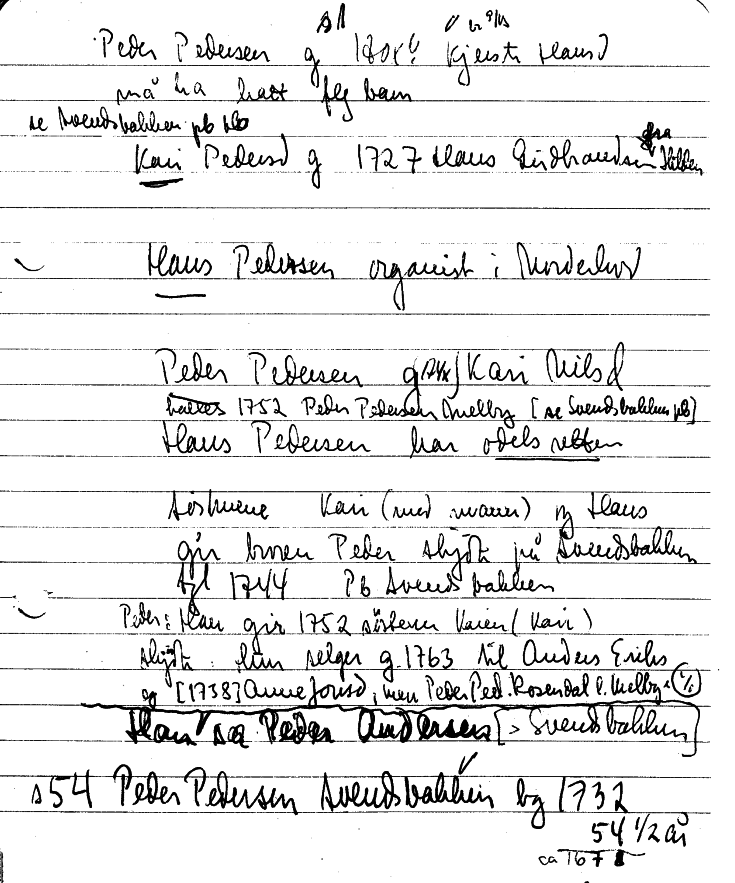 Peder Pedersen g Kjersti Hansd
må ha hatt flg barn
se Svendsbakken pb
Kari Pedersd g 1727 Hans Gudbrandsen fra
Hans Pedersen organist i Norderhov
Peder Pedersen g Kari Nilsd
1752 Peder Pedersen Melby [se Svendsbakken pb]
Hans Pedersen har odelsretten
Søsknene Kari (med mann) og Hans
gir broren Peder skjøte på Svendsbakken
1744 Pb Svendsbakken
Peder: Han gir 1752 søsteren Karen (Kari)
skjøte. Hun selger g. 1763 til Anders Eriks
og [1738] Anne Jonsd, men Peder Ped. Rosendal e. Melby
Han sa Peder Andersen [> Svendsbakken]
s 54 Peder Pedersen Svendsbakken bg 1732
54 1/2 år
ca 167